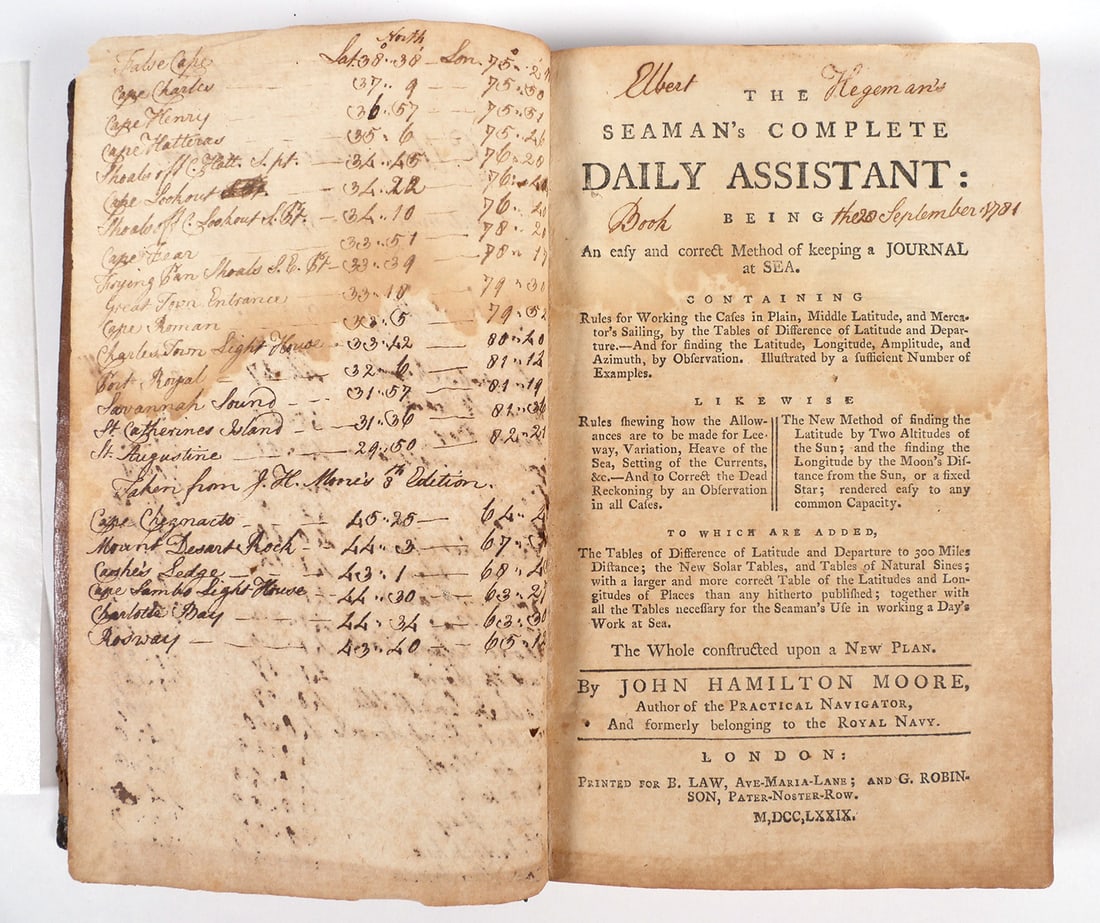 North
False Cape Lat 38° 38' Lon. 75°
Cape Charles 37 .. 9 75 .. 50
Cape Henry 36 .. 57 75 .. 51
Cape Hatteras 35 .. 6 75 .. 26
Shoals off C. Hatt. S. pt. 34 .. 45 76 .. 20
Cape Lookout 34 . 22 76
Shoals off C. Lookout S. Pt. 34 . 10 76
Cape Fear 33 . 51 78
Frying Pan Shoals S. E. Pt 33 . 39 78
Great Town Entrance 33 . 10 79
Cape Roman 5 79
Charles Town Light House 33 . 42 80 . 40
Port Royal 32 . 6 81 . 12
Savannah Sound 31 . 57 81 . 19
St Catherines Island 31 . 36 81 . 36
St. Augustine 29 .. 50 82
Taken from J. H. Mores 8th Edition.
Cape 45 . 25 64
Mount Desart Rock 44 .. 3 67
Cashe's Ledge 43 . 1 68
Cape Sambo Light House 44 . 30 63
Charlotte Bay 44 . 34 63
Rosway 43 . 40 65
Elbert Hegeman's
THE
SEAMAN's COMPLETE
DAILY ASSISTANT:
Book
BEING the 28 September 1781
An eaſy and correct Method of keeping a JOURNAL
at SEA.
CONTAINING
Rules for Working the Caſes in Plain, Middle Latitude, and Merca-
tor's Sailing, by the Tables of Difference of Latitude and Depar-
ture.—And for finding the Latitude, Longitude, Amplitude, and
Azimuth, by Obſervation. Illuſtrated by a ſufficient Number of
Examples.
LIKEWISE
Rules ſhewing how the Allow-
ances are to be made for Lee-
way, Variation, Heave of the
Sea, Setting of the Currents,
&c.—And to Correct the Dead
Reckoning by an Obſervation
in all Caſes.
The New Method of finding the
Latitude by Two Altitudes of
the Sun; and the finding the
Longitude by the Moon's Diſ-
tance from the Sun, or a fixed
Star; rendered eaſy to any
common Capacity.
TO WHICH ARE ADDED,
The Tables of Difference of Latitude and Departure to 300 Miles
Diſtance; the New Solar Tables, and Tables of Natural Sines;
with a larger and more correct Table of the Latitudes and Lon-
gitudes of Places than any hitherto publiſhed; together with
all the Tables neceſſary for the Seaman's Uſe in working a Day's
Work at Sea.
The Whole conſtructed upon a NEW PLAN.
By JOHN HAMILTON MOORE,
Author of the PRACTICAL NAVIGATOR,
And formerly belonging to the ROYAL NAVY.
LONDON:
PRINTED FOR B. LAW, AVE-MARIA-LANE; AND G. ROBIN-
SON, PATER-NOSTER-ROW.
M,DCC,LXXIX.